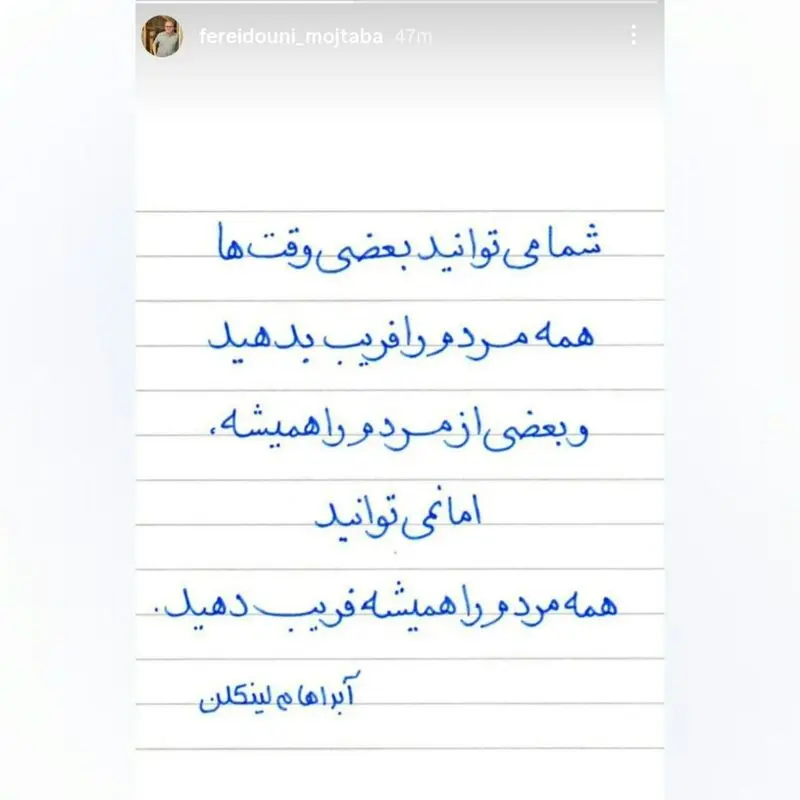 fereidouni_mojtaba 47m
شما می توانید بعضی وقت ها
همه مردم را فریب بدهید
و بعضی از مردم را همیشه،
اما نمی توانید
همه مردم را همیشه فریب دهید.
آبراهام لینکلن